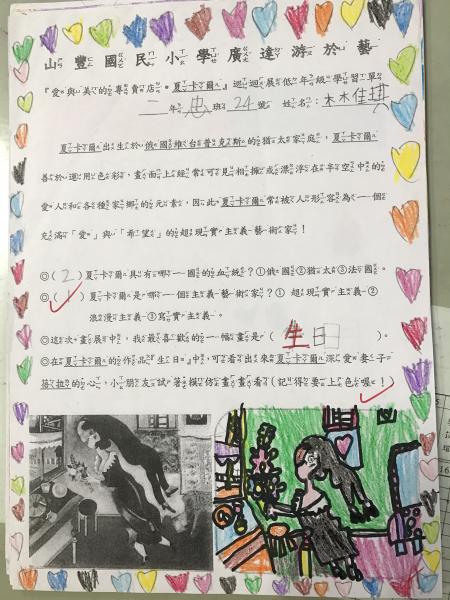 山豐國民小學廣達游於藝
『愛與美的專賣店。夏卡爾』巡迴展低年級學習單
二年忠班24號 姓名：林佳琪
夏卡爾出生於俄國維台普克斯的猶太家庭，夏卡爾
善於運用色彩，畫面上經常可見相擁或漂浮在半空中的
愛人和各種家鄉的元素，因此夏卡爾常被人形容為一個
充滿「愛」與「希望」的超現實主義藝術家！
◎（2）夏卡爾具有哪一國的血統？①俄國②猶太③法國。
◎（1）夏卡爾是哪一個主義藝術家？①超現實主義②
浪漫主義③寫實主義。
◎這次畫展中，我最喜歡的一幅畫是（生日）。
◎在夏卡爾的作品『生日』中，可看出來夏卡爾深愛妻子
蓓拉的心，小朋友試著模仿畫畫看（記得要上色喔！）